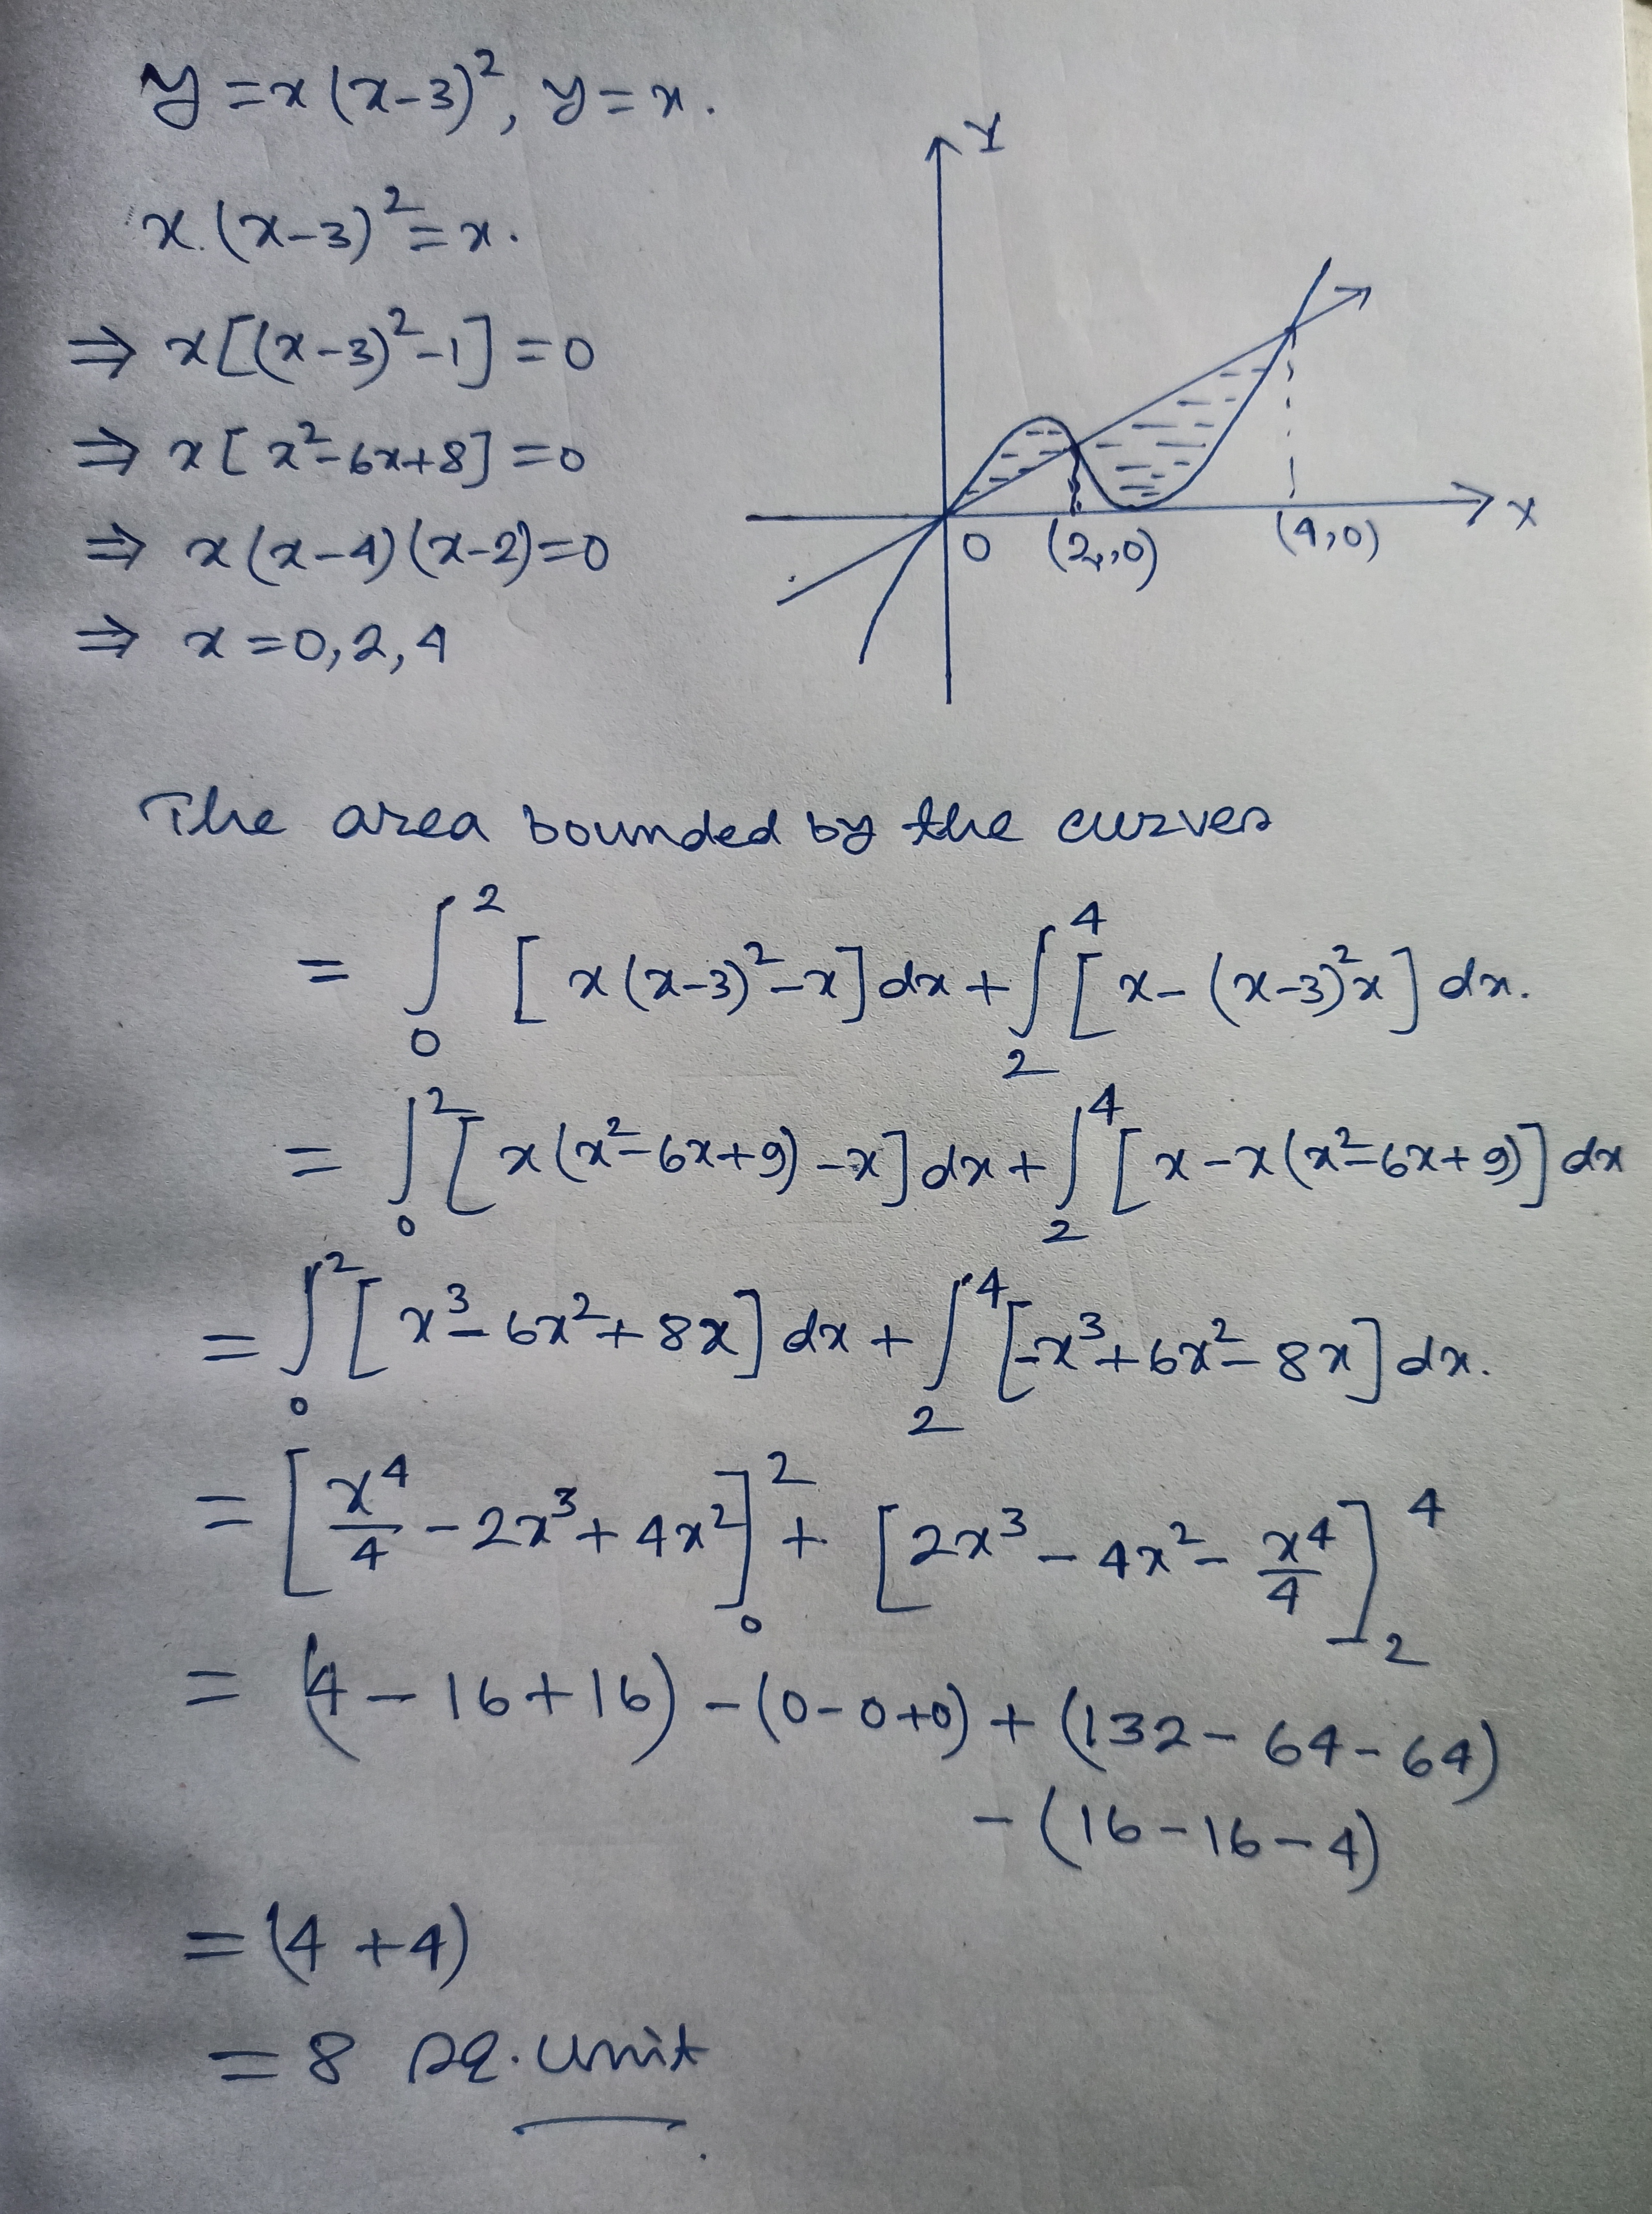 y = x(x-3)², y = x.
x.(x-3)² = x.
⇒ x[(x-3)²-1] = 0
⇒ x[x²-6x+8] = 0
⇒ x(x-4)(x-2) = 0
⇒ x = 0, 2, 4
Y
X
O (2,,0) (4,0)
The area bounded by the curves
= ∫₀² [x(x-3)²-x]dx + ∫₂⁴ [x-(x-3)²x]dx.
= ∫₀² [x(x²-6x+9)-x]dx + ∫₂⁴ [x-x(x²-6x+9)]dx
= ∫₀² [x³-6x²+8x]dx + ∫₂⁴ [-x³+6x²-8x]dx.
= [x⁴/4 - 2x³ + 4x²]₀² + [2x³ - 4x² - x⁴/4]₂⁴
= (4-16+16) - (0-0+0) + (132-64-64)
- (16-16-4)
= (4+4)
= 8 sq. unit